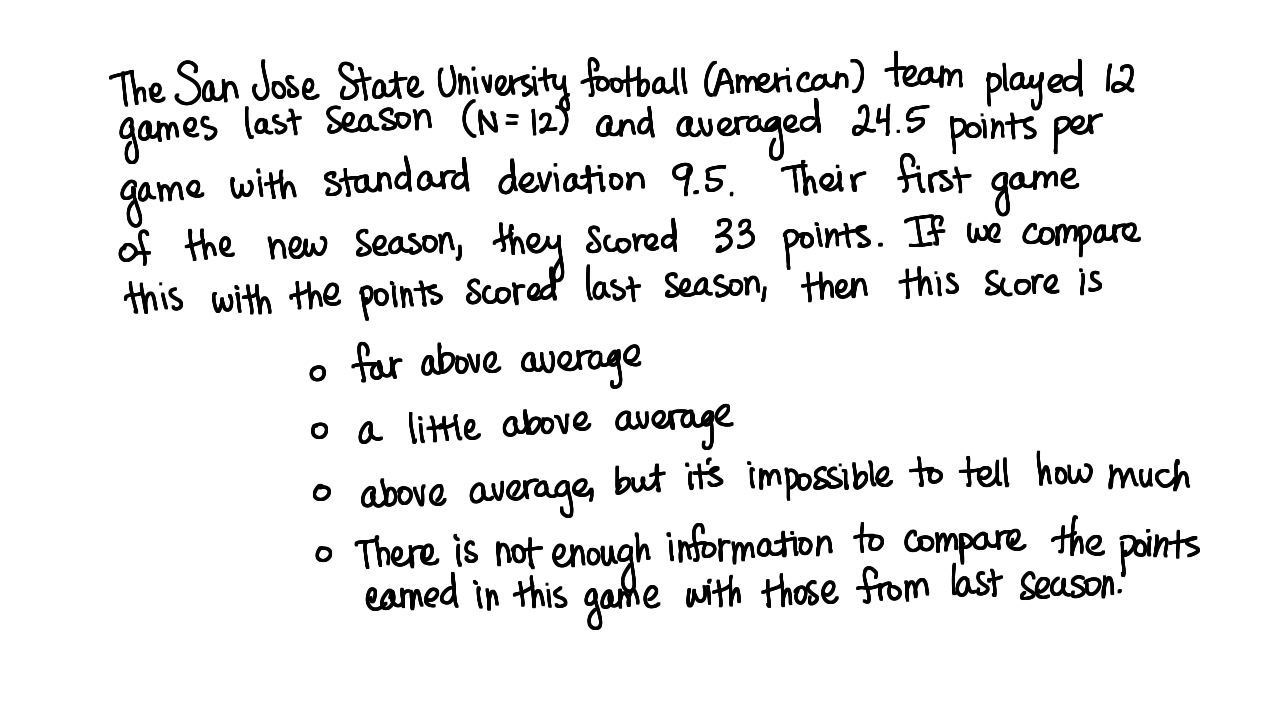 The San Jose State University football (American) team played 12
games last season (N = 12) and averaged 24.5 points per
game with standard deviation 9.5. Their first game
of the new season, they scored 33 points. If we compare
this with the points scored last season, then this score is
o far above average
o a little above average
o above average, but it's impossible to tell how much
o There is not enough information to compare the points
earned in this game with those from last season.